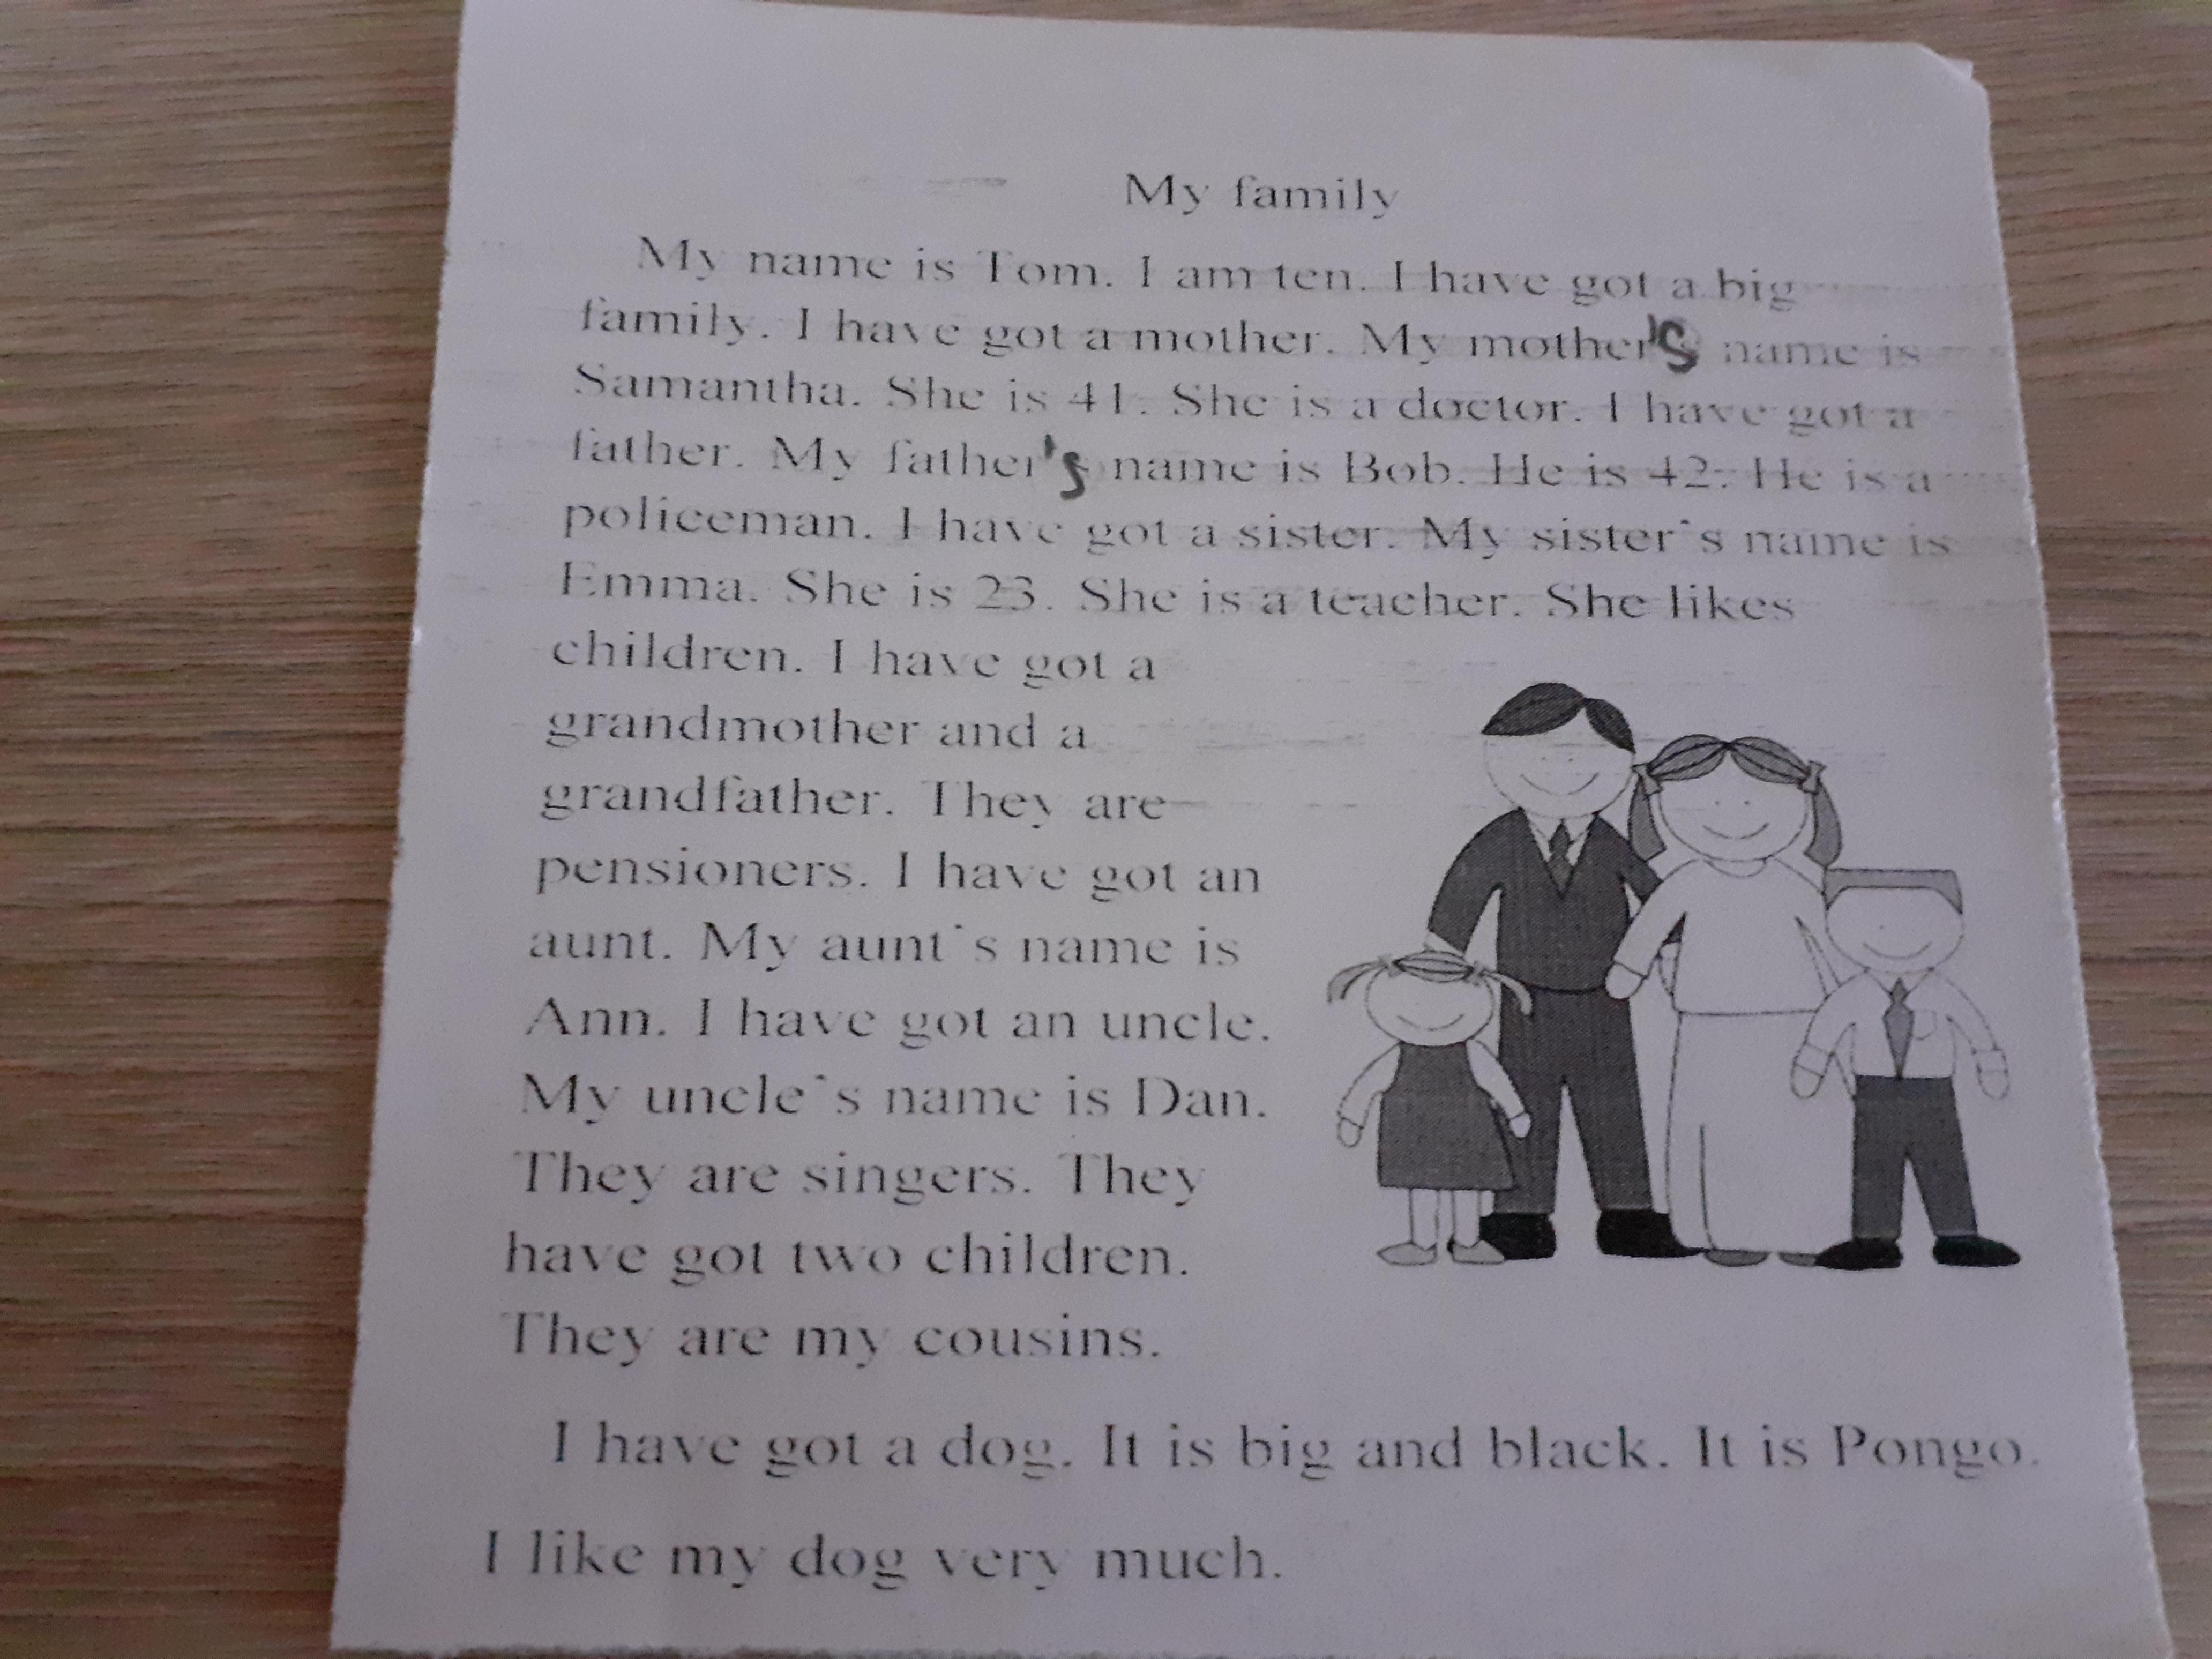 My family
My name is Tom. I am ten. I have got a big
family. I have got a mother. My mother's name is
Samantha. She is 41. She is a doctor. I have got a
father. My father's name is Bob. He is 42. He is a
policeman. I have got a sister. My sister`s name is
Emma. She is 23. She is a teacher. She likes
children. I have got a
grandmother and a
grandfather. They are
pensioners. I have got an
aunt. My aunt`s name is
Ann. I have got an uncle.
My uncle`s name is Dan.
They are singers. They
have got two children.
They are my cousins.
I have got a dog. It is big and black. It is Pongo.
I like my dog very much.